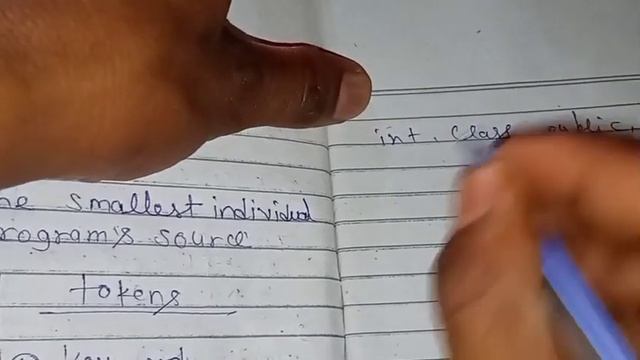 int, class, public,
smallest individual
program's source
tokens